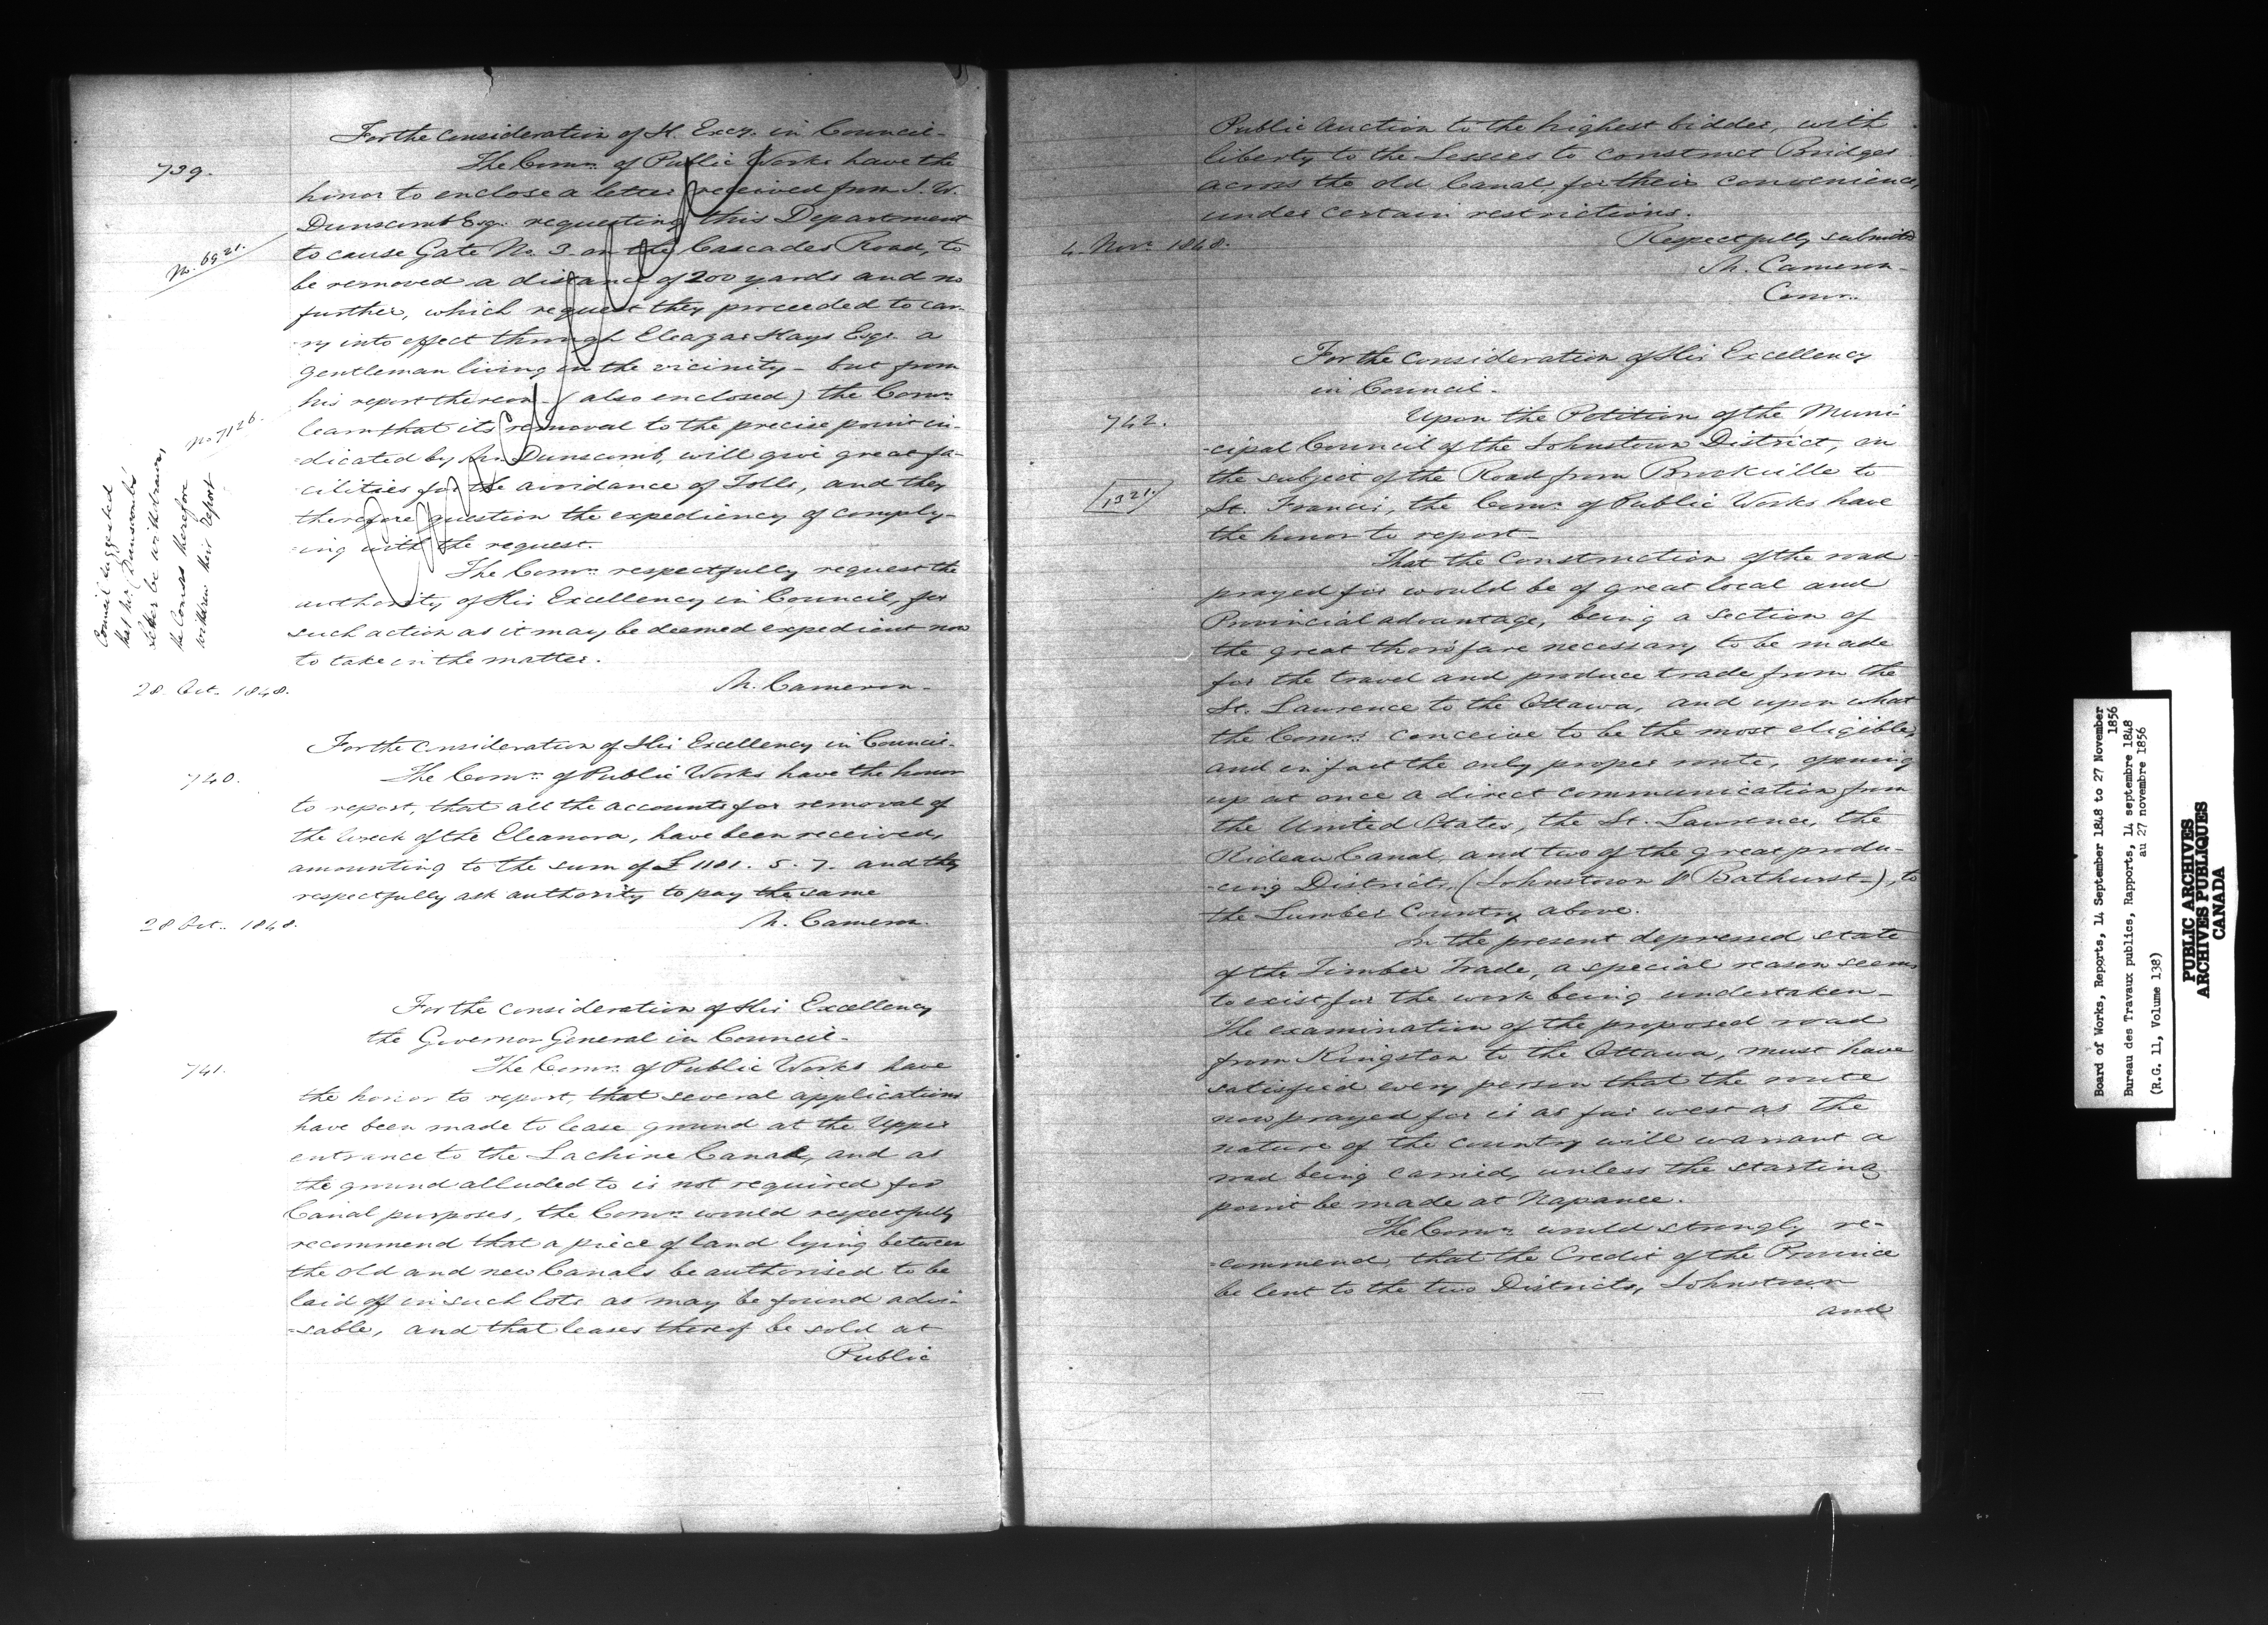 For the consideration of H. Excy. in Council-
739.
The Comrs. of Public Works have the
honor to enclose a letter received from J. W.
Dunscomb Esqr. requesting this Department
No. 6921.
to cause Gate No. 3 on the Cascades Road, to
be removed a distance of 200 yards and no
further, which request they proceeded to car-
-ry into effect through Eleazar Hays Esqr. a
gentleman living in the vicinity - but from
his report thereon - (also enclosed) the Comrs.
No 7126.
learn that its removal to the precise point in-
-dicated by Mr. Dunscomb, will give great fa-
-cilities for the avoidance of Tolls, and they
therefore question the expediency of comply-
-ing with the request.
Council suggested
that Mr. Dunscomb's
Letter be withdrawn,
the Comrs therefore
withdrew their Report
Cancelled
The Comrs. respectfully request the
authority of His Excellency in Council, for
such action as it may be deemed expedient now
to take in the matter.
28. Oct. 1848.
M. Cameron-
For the consideration of His Excellency in Council-
740.
The Comrs. of Public Works have the honor
to report, that all the accounts for removal of
the Wreck of the Eleanora, have been received,
amounting to the sum of £1101. 5. 7. and they
respectfully ask authority to pay the same
28 Oct. 1848.
M. Cameron.
For the consideration of His Excellency
the Governor General in Council-
741.
The Comrs. of Public Works have
the honor to report, that several applications
have been made to lease ground at the Upper
entrance to the Lachine Canal, and as
the ground alluded to is not required for
Canal purposes, the Comrs. would respectfully
recommend that a piece of land lying between
the old and new Canals be authorised to be
laid off in such lots as may be found advi-
-sable, and that leases thereof be sold at
Public
Public Auction to the highest bidder, with
liberty to the Lessees to construct Bridges
across the old Canal, for their convenience,
under certain restrictions.
4. Novr. 1848.
Respectfully submitted
M. Cameron-
Comr.
For the consideration of His Excellency
in Council-
742.
Upon the Petition of the Muni-
-cipal Council of the Johnstown District, on
the subject of the Road from Brockville to
1321.
St. Francis, the Comrs. of Public Works have
the honor to report-
That the construction of the road
prayed for would be of great local and
Provincial advantage, being a section of
the great thoro'fare necessary to be made
for the travel and produce trade from the
St. Lawrence to the Ottawa, and upon what
the Comrs. conceive to be the most eligible,
and in fact the only proper route, opening
up at once a direct communication from
the United States, the St. Lawrence, the
Rideau Canal, and two of the great produ-
-cing Districts, (Johnstown & Bathurst-), to
the Lumber Country above.
In the present depressed state
of the Timber Trade, a special reason seems
to exist for the work being undertaken-
The examination of the proposed road
from Kingston to the Ottawa, must have
satisfied every person that the route
now prayed for is as far west as the
nature of the country will warrant a
road being carried, unless the starting
point be made at Napanee.
The Comrs. would strongly re-
-commend, that the Credit of the Province
be lent to the two Districts, Johnstown
and
Board of Works, Reports, 14 September 1848 to 27 November
1856
Bureau des Travaux publics, Rapports, 14 septembre 1848
au 27 novembre 1856
(R.G. 11, Volume 138)
PUBLIC ARCHIVES
ARCHIVES PUBLIQUES
CANADA